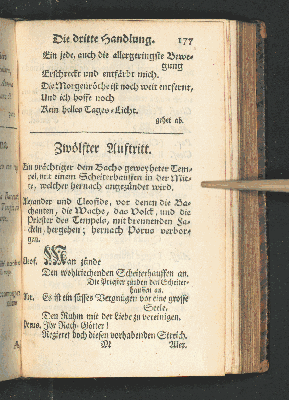 Die dritte Handlung. 177
Ein jede, auch die allergeringste Bewe-
gung
Erschreckt und entfärbt mich.
Die Morgenröthe ist noch weit entfernt,
Und ich hoffe noch
Kein helles Tages-Licht.
gehet ab.
Zwölfter Auftritt.
Ein prächtiger dem Bacho geweyheter Tem-
pel, mit einem Scheiterhauffen in der Mit-
te, welcher hernach angezündet wird.
Alexander und Cleofide, vor denen die Ba-
chanten, die Wache, das Volck, und die
Priester des Tempels, mit brennenden Fa-
ckeln, hergehen; hernach Porus verbor-
gen.
Cleof. Man zünde
Den wohlriechenden Scheiterhauffen an.
Die Priester zünden den Scheiter-
hauffen an.
Es ist ein süsses Vergnügen vor eine grosse
Seele,
Den Ruhm mit der Liebe zu vereinigen.
Porus. Ihr Rach-Götter!
Regieret doch diesen vorhabenden Streich.
M Alex.